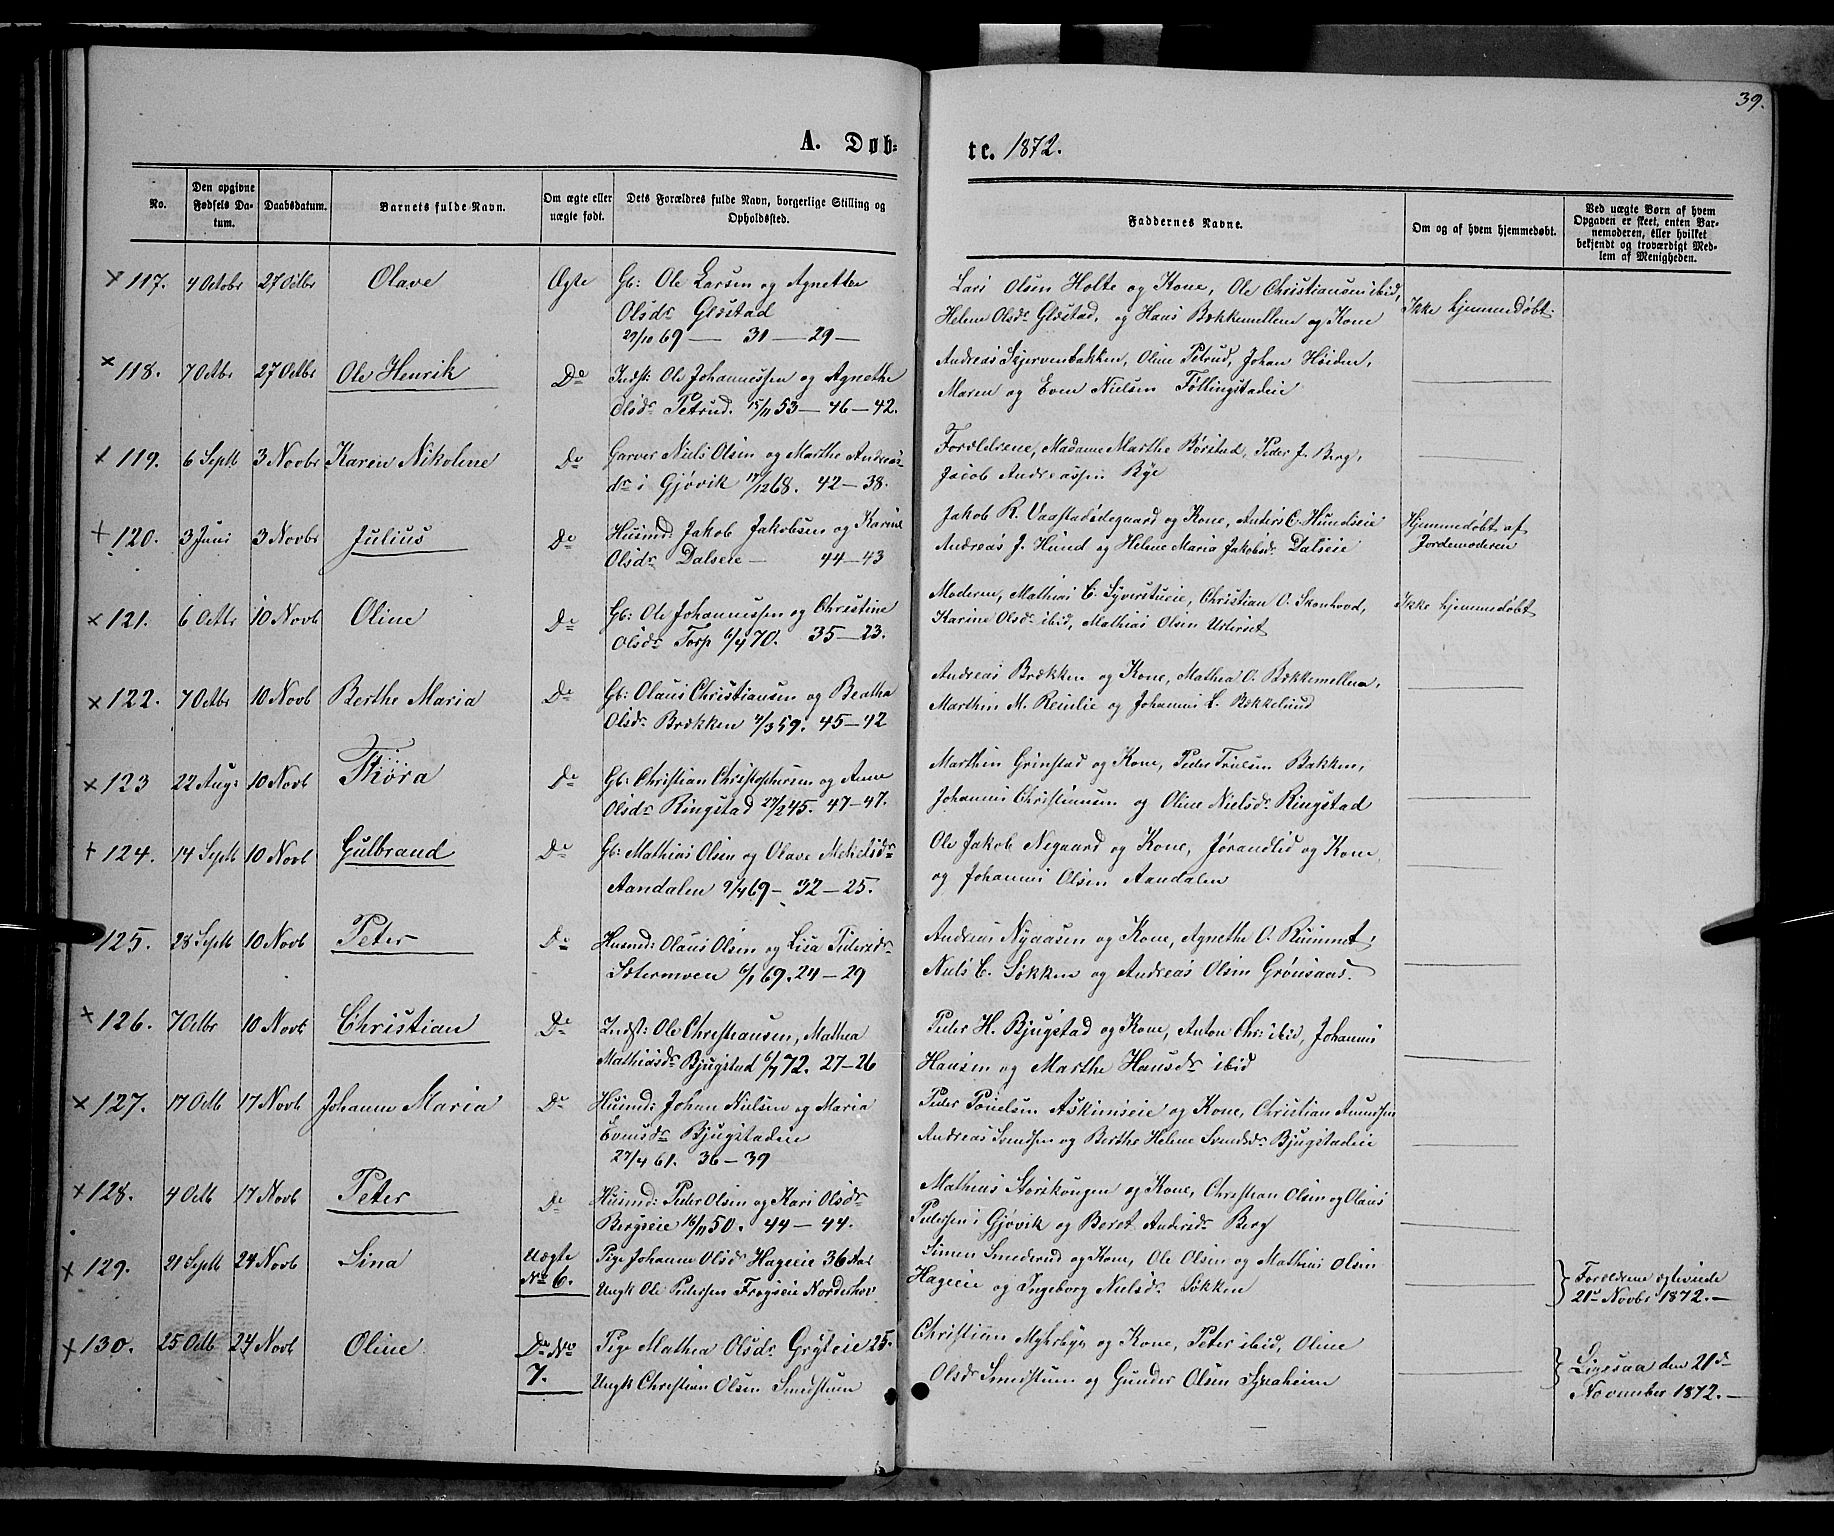 39.
A. Døb-
te. 1872.
No.
Den opgivne Fødsels Da-tum.
Daabsdatum.
Barnets fulde Navn.
Om ægte eller uægte født.
Dets Forældres fulde Navn, borgerlige Stilling og Opholdssted.
Faddernes Navne.
Om og af hvem hjemmedøbt.
Ved uægte Børn af hvem Opgaven er skeet, enten Bar-nemoderen, eller hvilket bekjendt og troværdigt Med-lem af Menigheden.
× 117. 4 Octobr 27 Octbr Olave Ægte Gb: Ole Larsen og Agnethe
Olsdr Glæstad
29/10 69 — 30 — 29 —
Lars Olsen Holte og Kone, Ole Christiansen ibid,
Helene Olsdr Glæstad, og Hans Bækkemellem og Kone
Ikke hjemmedøbt.
× 118. 7 Octbr 27 Octbr Ole Henrik Do Indst: Ole Johannessen og Agnethe
Olsdr Petrud. 15/11 53 — 46 — 42.
Andreas Skjervenbakken, Oline Petrud, Johan Høiden,
Maren og Even Nielsen Føllingstadeie
× 119. 6 Septb 3 Novbr Karen Nikoline Do Garver Niels Olsen og Marthe Andreas-
dr i Gjøvik 17/12 68. 42 — 38.
Forældrene, Madame Marthe Børstad, Peder J. Berg,
Jacob Andreassen Bye
+ 120. 3 Juni 3 Novbr Julius Do Husmd: Jakob Jakobsen og Karine
Olsdr Dalseie — 44 — 43
Jakob R. Vaastadødegaard og Kone, Anders C. Hundseie
Andreas J. Hund og Helene Maria Jakobsdr Dalseie
Hjemmedøbt af
Jordemoderen
× 121. 6 Octbr 10 Novb Oline Do Gb: Ole Johannessen og Christine
Olsdr Torp 6/4 70. 35 — 23.
Moderen, Mathias C. Syverstueie, Christian O. Skonhovd,
Karine Olsdr ibid, Mathias Olsen
Ikke hjemmedøbt
× 122. 7 Octbr 10 Novb Berthe Maria Do Gb: Olaus Christiansen og Beatha
Olsdr Brækken 4/3 59. 45 — 42
Andreas Brækken og Kone, Mathea O. Bækkemellem,
Marthin M. Reinlie og Johannes L. Bækkelund
× 123 22 Aug: 10 Novb Thora Do Gb: Christian Christophersen og Anne
Olsdr Ringstad 27/2 45. 47 — 47.
Marthin Grinstad og Kone, Peder Truelsen Bakken,
Johannes Christiansen og Oline Nielsdr Ringstad
+ 124. 14 Septb 10 Novb Gulbrand Do Gb: Mathias Olsen og Olave Mekelsdr
Aandalen 9/4 69 — 32 — 25.
Ole Jakob Negaard og Kone, Jørandlid og Kone
og Johannes Olsen Aandalen
125. 28 Septb 10 Novb Peter Do Husmd: Olaus Olsen og Lisa Pedersdr
Sætermoen 6/1 69. 24 — 29
Andreas Nyaasen og Kone, Agnethe O. Rummet,
Niels C. Løkken og Andreas Olsen Grønsaas.
× 126. 7 Octbr 10 Novb Christian Do Indst: Ole Christiansen, Mathea
Mathiasdr Bjugstad 6/7 72. 27 — 26
Peder H. Bjugstad og Kone, Anton Chr: ibid, Johannes
Hansen og Marthe Hansdr ibid
× 127. 17 Octb 17 Novb Johanne Maria Do Husmd: Johan Nielsen og Maria
Evensdr Bjugstadeie
27/4 61. 36 — 39
Peder Povelsen Askimseie og Kone, Christian Amundsen
Andreas Svendsen og Berthe Helene Svendsdr Bjugstadeie
× 128. 4 Octb 17 Novb Peter Do Husmd: Peder Olsen og Kari Olsdr
Bergseie 16/11 50. 44 — 44.
Mathias Storkongen og Kone, Christian Olsen og Olaus
Pedersen i Gjøvik og Beret Andersdr Berg
× 129. 21 Septb 24 Novb Lina Uægte
No 6.
Pige Johanne Olsdr Hageeie 36 Aar
Ungk Ole Pedersen Frøgseie Norderhov
Simen Smederud og Kone, Ole Olsen og Mathias Olsen
Hageeie og Ingeborg Nielsdr Løkken
Forældrene opgivede
21de Novbr 1872. —
× 130. 25 Octb 24 Novb Oline Do No
7.
Pige Mathea Olsdr Gryteie 25.
Ungk Christian Olsen Smedstuen
Christian Myhrbye og Kone, Peter ibid, Oline
Olsdr Smedstuen og Gunder Olsen Synaheim
Ligesaa den 21de
November 1872. —